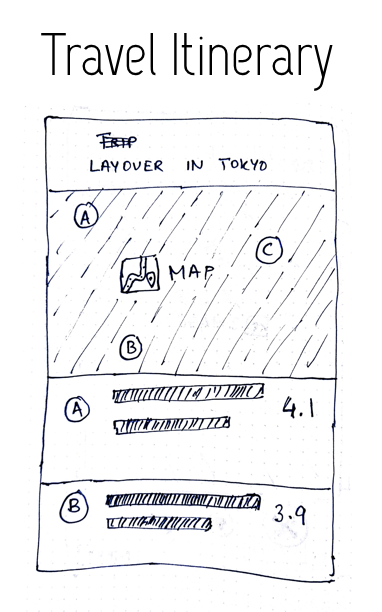 Travel Itinerary
LAYOVER IN TOKYO
A
C
MAP
B
A
4.1
B
3.9